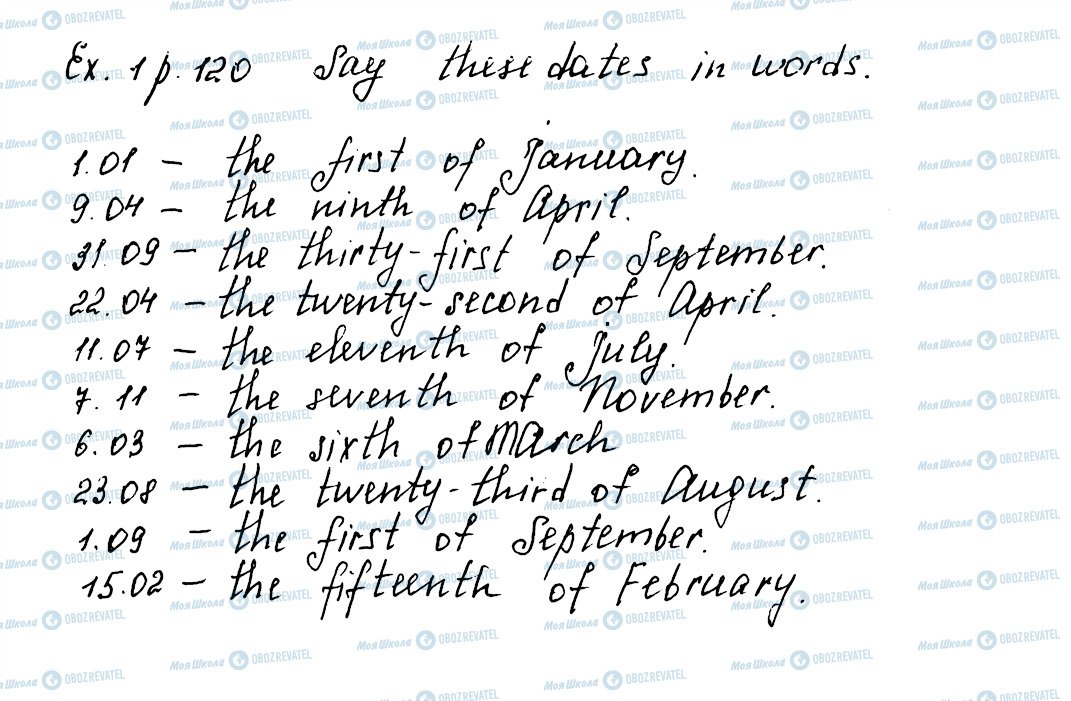 Ex. 1 p. 120 Say these dates in words.
1.01 – the first of January.
9.04 – the ninth of April.
31.09 – the thirty-first of September.
22.04 – the twenty-second of April.
11.07 – the eleventh of July.
7.11 – the seventh of November.
6.03 – the sixth of March
23.08 – the twenty-third of August.
1.09 – the first of September.
15.02 – the fifteenth of February.